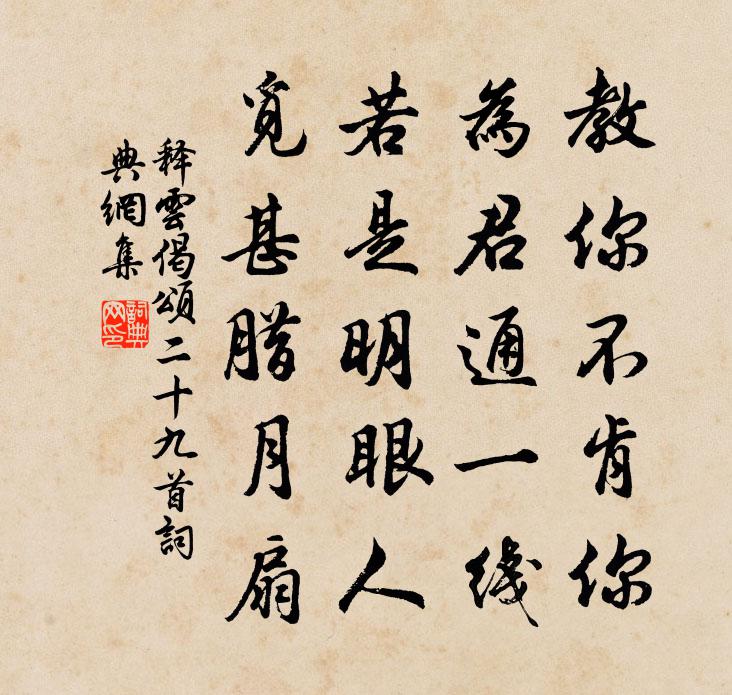 教你不肯你
為君通一线
若是明眼人
覓甚腊月扇
释雲偈頌二十九首詞
典網集
詞典
网印